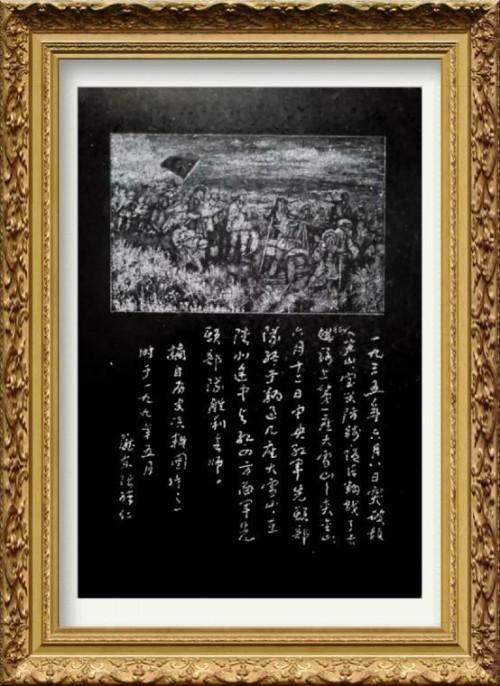 一九三五年六月八日突破敌
人芦山宝兴防线随后翻越了长
征路上第一座大雪山—夹金山
六月十二日中央红军先头部
队终于翻过几座大雪山在
途中与红四方面军先
头部队胜利会师。
摘自历史资料图片之一
时于一九九年五月